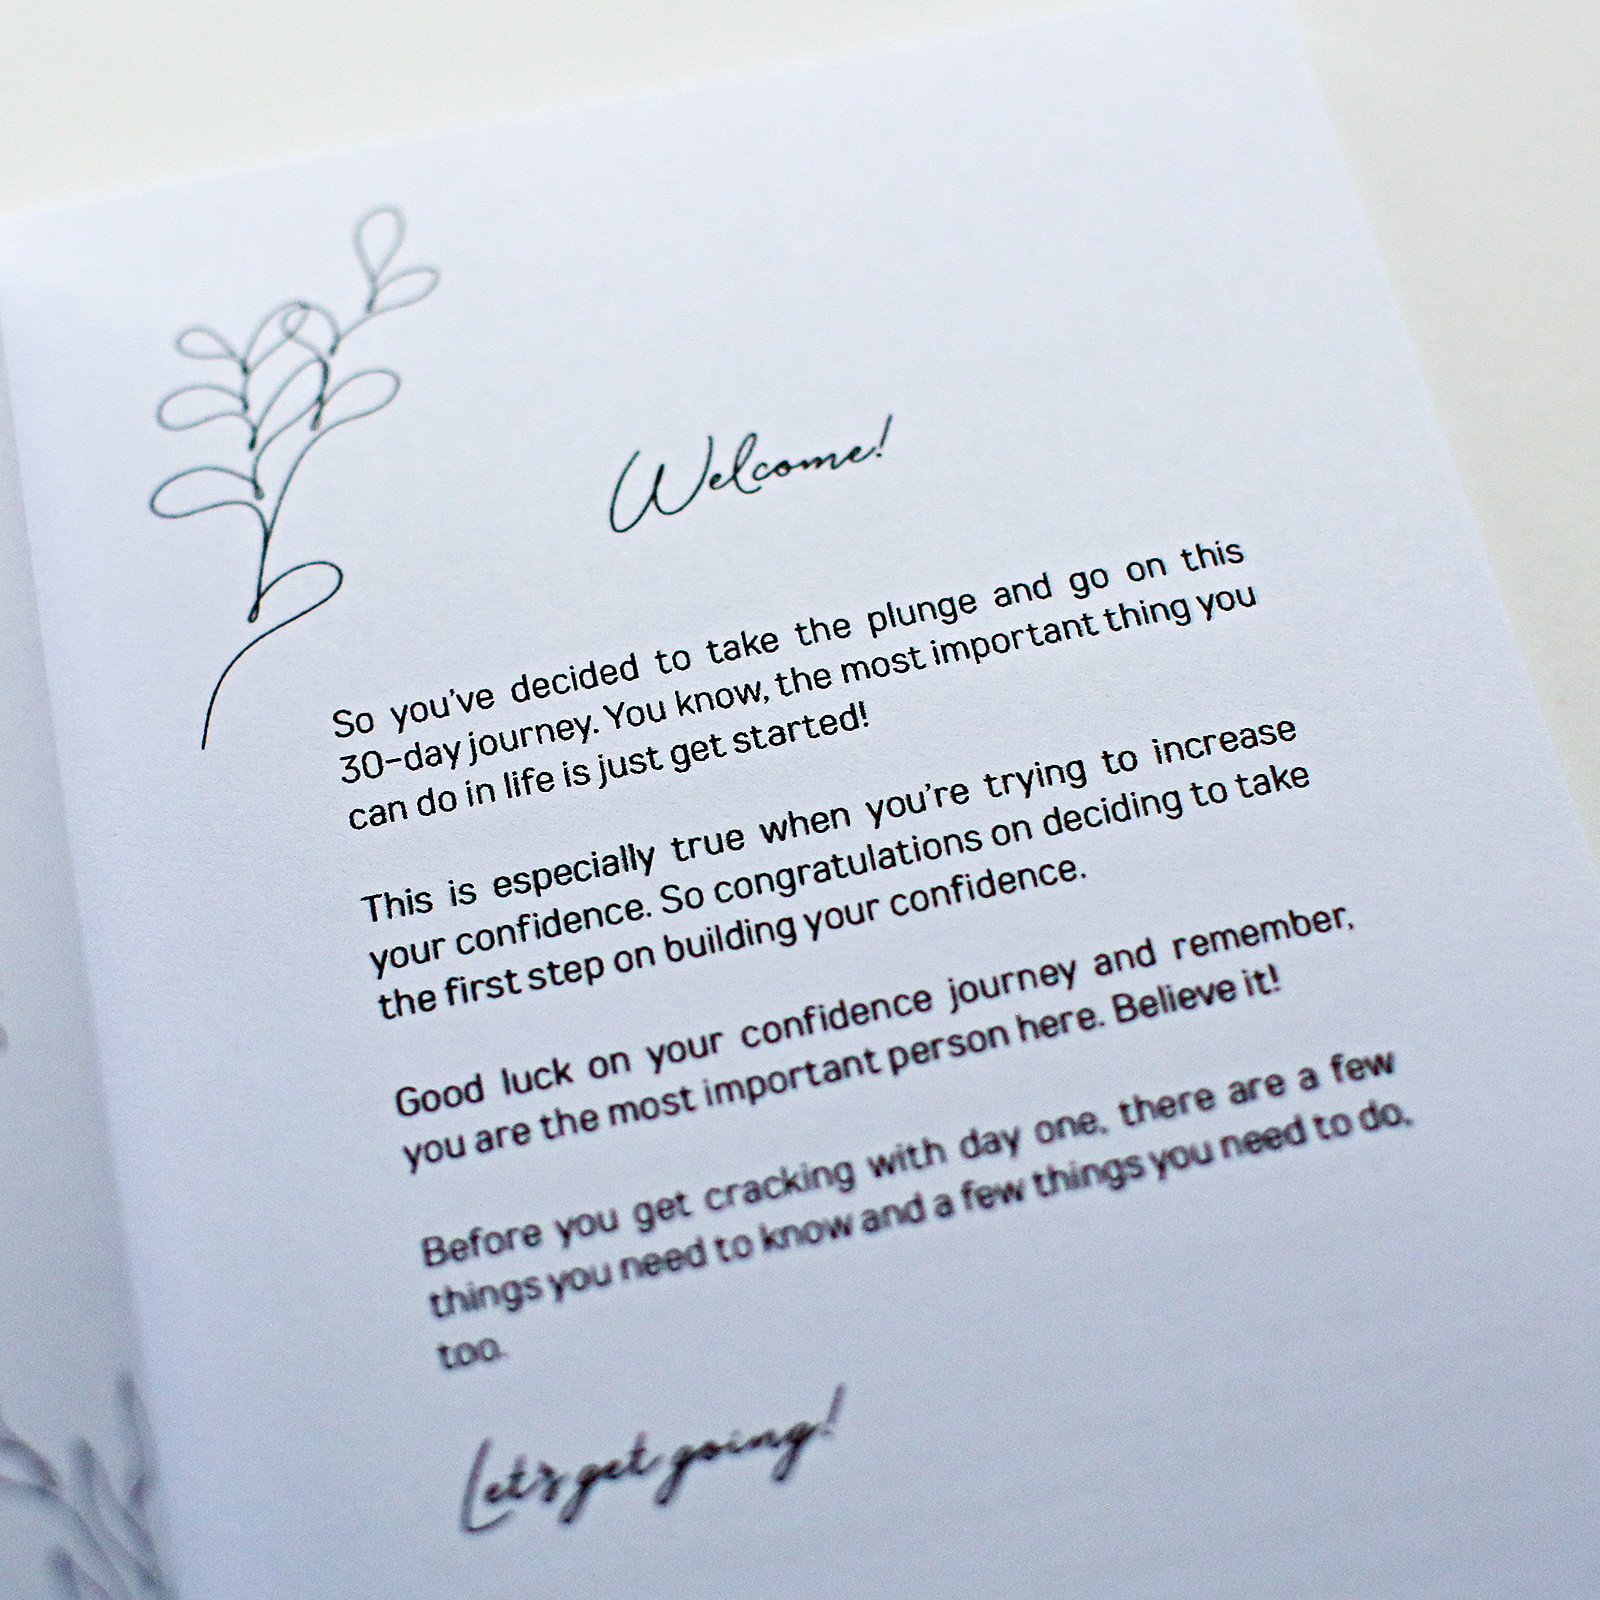 Welcome!
So you've decided to take the plunge and go on this
30-day journey. You know, the most important thing you
can do in life is just get started!
This is especially true when you're trying to increase
your confidence. So congratulations on deciding to take
the first step on building your confidence.
Good luck on your confidence journey and remember,
you are the most important person here. Believe it!
Before you get cracking with day one, there are a few
things you need to know and a few things you need to do,
too.
Let's get going!